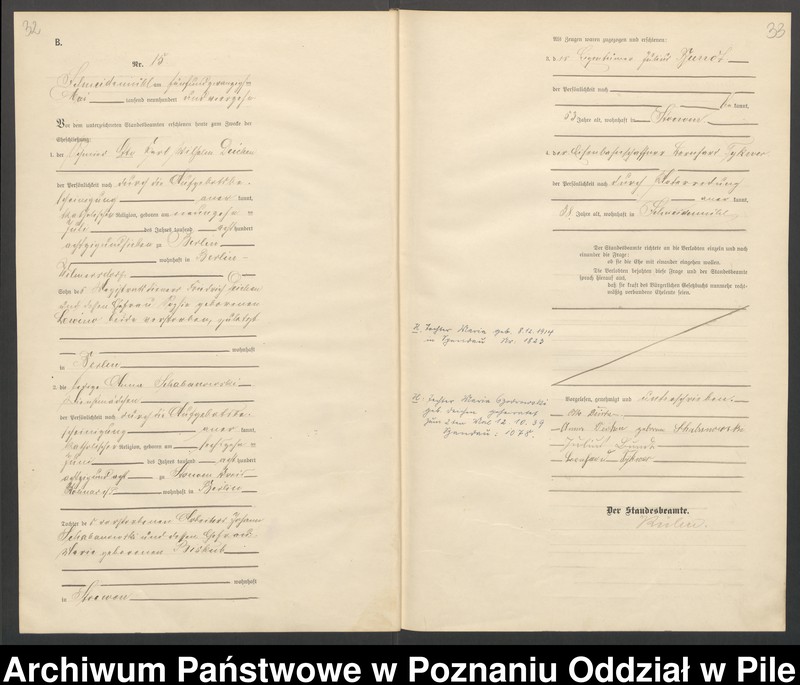 32
B.
Nr. 15
Schneidemühl am fünfundzwanzigsten
Mai tausend neunhundert und vierzehn
Vor dem unterzeichneten Standesbeamten erschienen heute zum Zwecke der
Eheschließung:
1. der Schmied Otto Karl Wilhelm Deichen
der Persönlichkeit nach durch die Aufgebotsbe-
scheinigung aner kannt,
katholischer Religion, geboren am neunzehn
Juli des Jahres tausend acht hundert
achtzig und sieben zu Berlin
wohnhaft in Berlin-
Wilmersdorf
Sohn des Friedrich Deichen
und dessen Ehefrau geborenen
beide verstorben, zuletzt
wohnhaft
in Berlin
2. die Anna Schabanowski
Dienstmädchen
der Persönlichkeit nach durch die Aufgebotsbe-
scheinigung aner kannt,
katholischer Religion, geboren am sechszehn
Juni des Jahres tausend acht hundert
achtzig und acht zu Stoewen Kreis
Kolmar i/P wohnhaft in Berlin
Tochter des verstorbenen Arbeiters Johann
Schabanowski und dessen Ehefrau
Marie geborenen
wohnhaft
in Stoewen
33
Als Zeugen waren zugezogen und erschienen:
3. der Eigentümer Julius
der Persönlichkeit nach
be kannt,
53 Jahre alt, wohnhaft in Stoewen
4. der Eisenbahnschaffner Leonhard Tykwer
der Persönlichkeit nach durch
aner kannt,
38 Jahre alt, wohnhaft in Schneidemühl
Der Standesbeamte richtete an die Verlobten einzeln und nach
einander die Frage:
ob sie die Ehe mit einander eingehen wollen.
Die Verlobten bejahten diese Frage und der Standesbeamte
sprach hierauf aus,
daß sie kraft des Bürgerlichen Gesetzbuchs nunmehr recht-
mäßig verbundene Eheleute seien.
Tochter Maria geb. 8.12.1914
in Spandau Nr. 1823
Tochter Maria
geb. Deichen geheiratet
zum 2ten Mal 12.10.39
Spandau: 1078.
Vorgelesen, genehmigt und unterschrieben.
Otto Deichen
Anna Deichen geborene Schabanowski
Julius
Leonhard Tykwer
Der Standesbeamte.
Archiwum Państwowe w Poznaniu Oddział w Pile